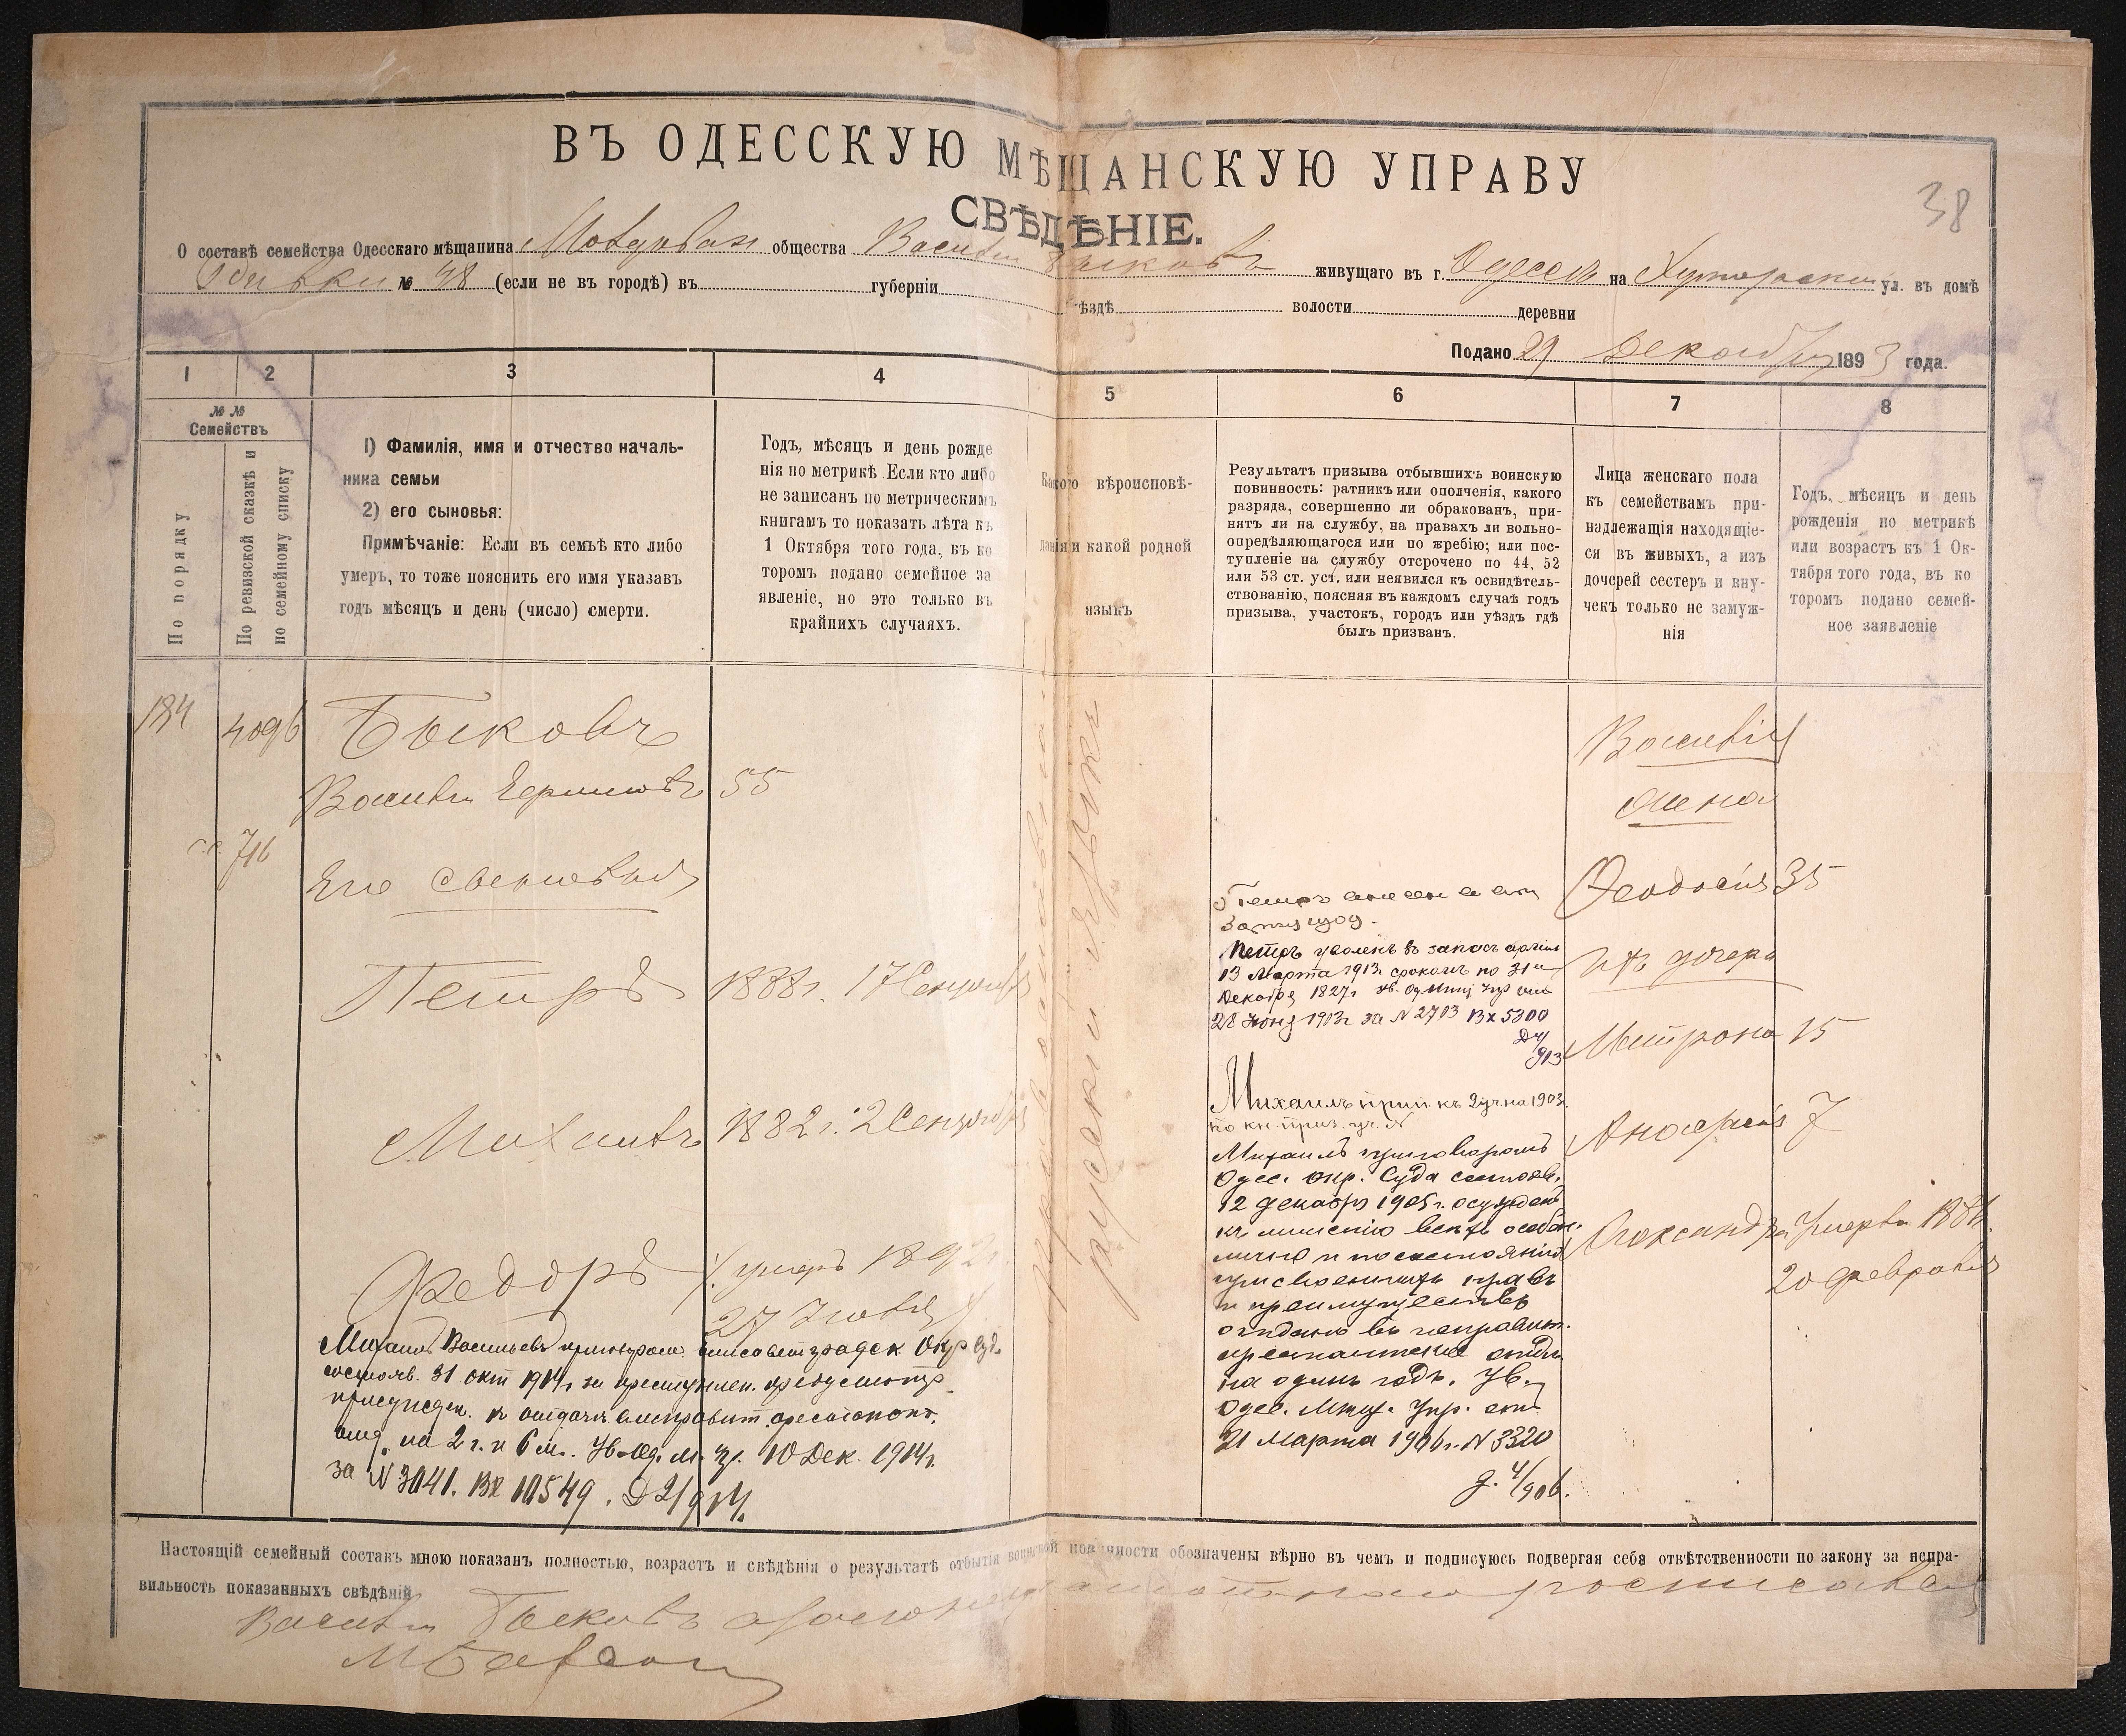 ВЪ ОДЕССКУЮ МѢЩАНСКУЮ УПРАВУ
38
СВѢДѢНІЕ.
О составѣ семейства Одесскаго мѣщанина общества Василiй Быковъ живущаго въ г. Одессѣ на Хуторской ул. въ домѣ
№ 48 (если не въ городѣ) въ губерніи уѣздѣ волости деревни
Подано 29 Декабря 1893 года.
1 2 3 4 5 6 7 8
№ №
Семействъ
По порядку
По ревизской сказкѣ и
по семейному списку
1) Фамилія, имя и отчество началь-
ника семьи
2) его сыновья:
Примѣчаніе: Если въ семьѣ кто либо
умеръ, то тоже пояснить его имя указавъ
годъ мѣсяцъ и день (число) смерти.
Годъ, мѣсяцъ и день рожде
нія по метрикѣ Если кто либо
не записанъ по метрическимъ
книгамъ то показать лѣта къ
1 Октября того года, въ ко
торомъ подано семейное за
явленіе, но это только въ
крайнихъ случаяхъ.
Какого вѣроисповѣ-
данія и какой родной
языкъ
Результатъ призыва отбывшихъ воинскую
повинность: ратникъ или ополченія, какого
разряда, совершенно ли обракованъ, при-
нятъ ли на службу, на правахъ ли вольно-
опредѣляющагося или по жребію; или пос-
тупленіе на службу отсрочено по 44, 52
или 53 ст. уст. или неявился къ освидѣтель-
ствованію, поясняя въ каждомъ случаѣ годъ
призыва, участокъ, городъ или уѣздъ гдѣ
былъ призванъ.
Лица женскаго пола
къ семействамъ при-
надлежащія находящіе-
ся въ живыхъ, а изъ
дочерей сестеръ и вну-
чекъ только не замуж-
нія
Годъ, мѣсяцъ и день
рожденія по метрикѣ
или возрастъ къ 1 Ок-
тября того года, въ ко
торомъ подано семей-
ное заявленіе
184 4096 Быковъ
Василiй 55
716
Его сыновья
Петръ 1888 г. 17 Сентября
Михаилъ 1882 г. 2 Сентября
Федоръ умеръ 1892 г.
27 Іюля
Михаилъ Васильевъ приговоромъ Елисаветградск Окр суд.
состояв. 31 окт 1914 г за преступлен. предусмотр
присужден. к отдачѣ в исправит. арестантск.
отд. на 2 г. и 6 м. Ув. Од. м. у. 10 Дек. 1914 г.
за № 3041. Вх 10549. Д 2/914.
православнаго
русскій языкъ
Петръ
Петръ уволенъ въ запасъ арміи
13 Марта 1913 г срокомъ по 31е
Декабря 1827 г Ув. Од. Мѣщ Упр отъ
28 Іюня 1913 г за № 2703 Вх 5300
Д 4/
913
Михаилъ прип къ 2 уч. на 1903
по кн. приз. уч. №
Михаилъ приговоромъ
Одес. Окр. Суда состояв.
12 декабря 1905 г. осужденъ
къ лишенію всѣхъ особен.
лично и по состоянію
присвоенныхъ правъ
и преимуществъ
отдачею въ исправит.
арестантскія отдѣл
на одинъ годъ. Ув.
Одес. Мѣщ. Упр. отъ
21 Марта 1906 г. № 3320
Д. 4/906.
Василія
жена
Феодосія 35
Ихъ дочери
Матрона 15
Анастасія 7
Александра умерла
20 февраля
Настоящій семейный составъ мною показанъ полностью, возрастъ и свѣдѣнія о результатѣ отбытія воинской повинности обозначены вѣрно въ чемъ и подписуюсь подвергая себя отвѣтственности по закону за непра-
вильность показанныхъ свѣдѣній
Василій Быковъ а за его неграмотнаго росписался